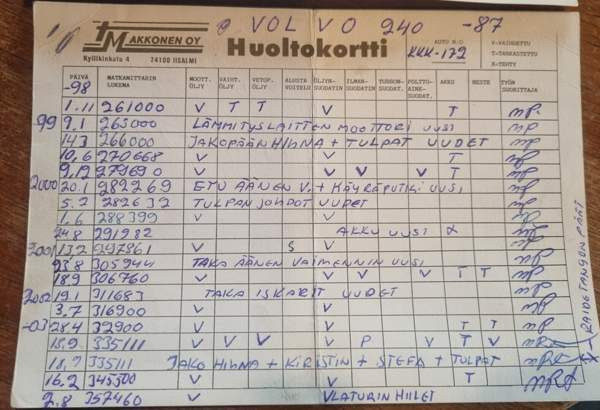 VOLVO 240 -87
T MAKKONEN OY
Nyllikinkatu 4 74100 IISALMI
Huoltokortti
AUTO N:O KKK-172
V=VAIHDETTU
T=TARKASTETTU
R=TEHTY
PÄIVÄ MATKAMITTARIN LUKEMA MOOTT. ÖLJY VAIHT. ÖLJY VETOP. ÖLJY ALUSTA VOITELU ÖLJYN-SUODATIN ILMAN-SUODATIN TURBOM. SUODAT. POLTTO-AINE-SUODAT. AKKU NESTE TYÖN SUORITTAJA
-98
1.11 261000 V T T V T MP.
99 9.1 265000 LÄMMITYSLAITTEN MOOTTORI UUSI MP
14.3 266000 JAKOPÄÄN HIHNA + TULPAT UUDET
10.6 270668 V V T
9.12 279690 V V V V T
2000 20.1 282269 ETU ÄÄNEN V. + KÄYRÄPUTKI UUSI
5.2 282632 TULPAN JOHDOT UUDET
1.6 288399 V V
24.8 291282 AKKU UUSI
2001 13.2 297861 V S V
305944 TAKA ÄÄNEN VAIMENNIN UUSI
18.9 306760 V V V V T T
2002 19.1 311683 TAKA ISKARIT UUDET
3.7 316900 V V
-03 28.4 32900 V V T T
18.9 335111 V V V V P V T V
18.9 335111 JAKO HIHNA + KIRISTIN + STEFA + TULPAT
16.2 345500 V V T
2.8 357460 V V LATURIN HIILET
X - RAIDETANGON PÄÄT